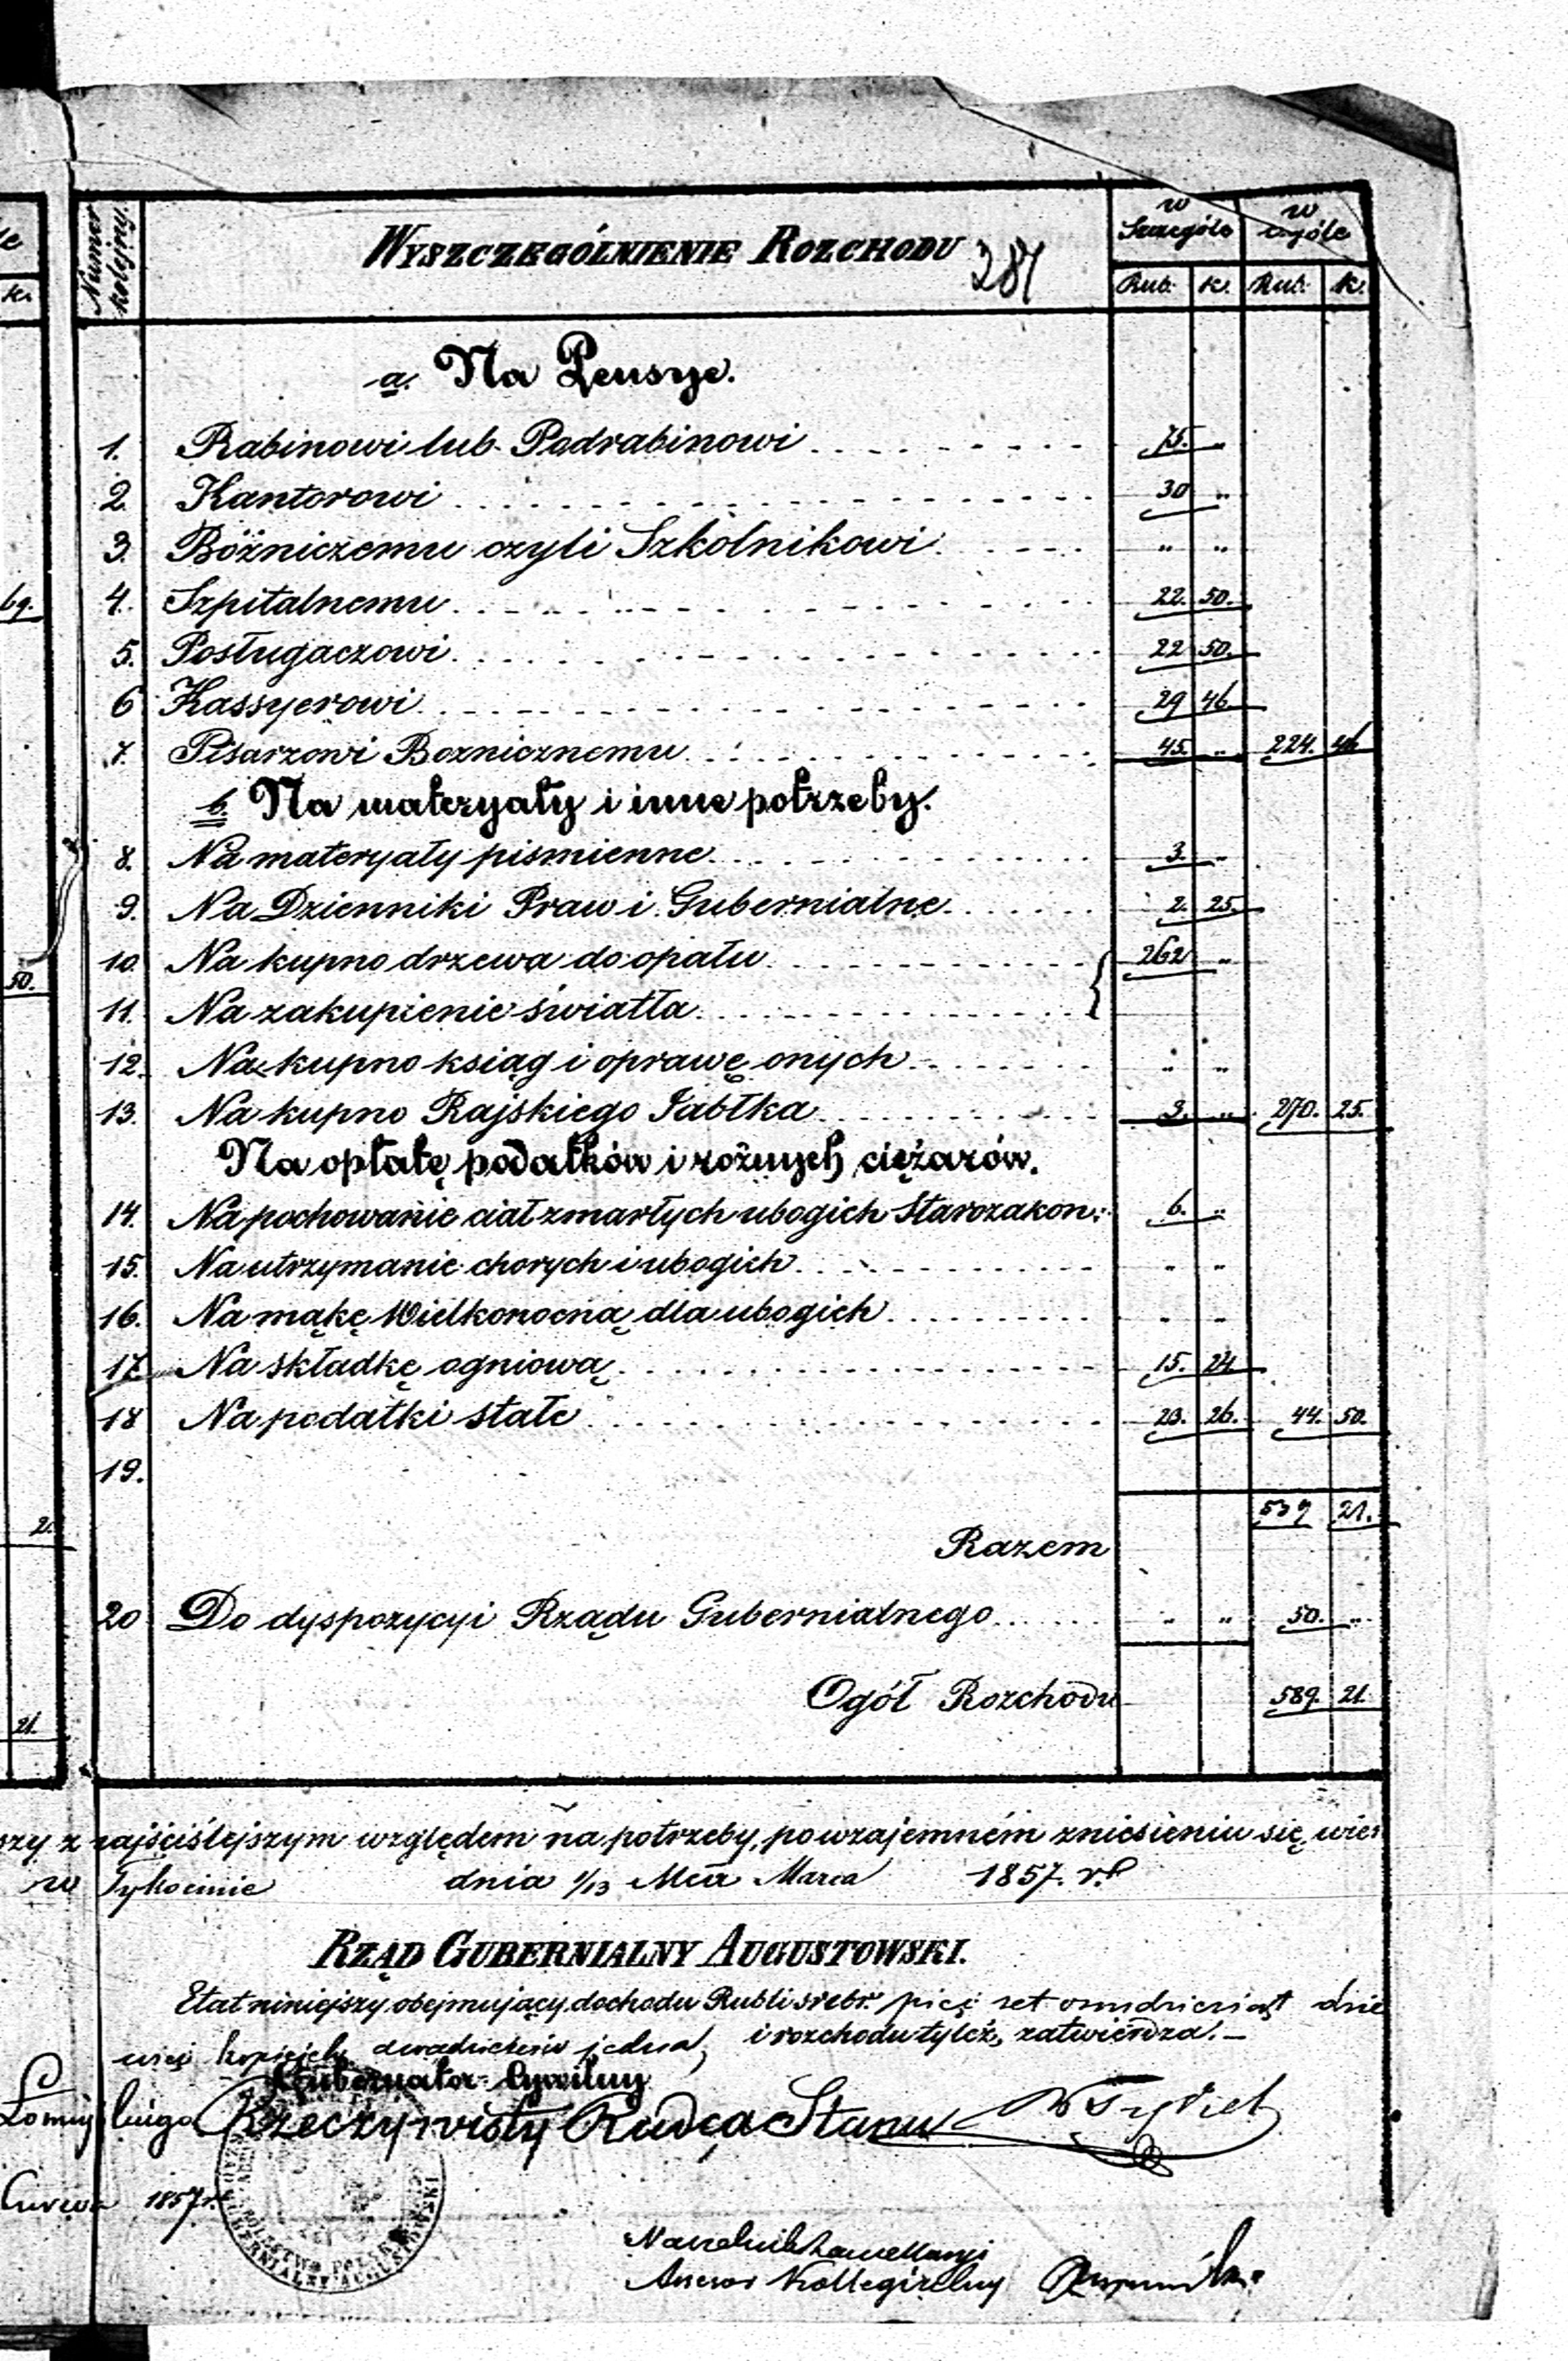 Numer kolejny.
WYSZCZEGÓLNIENIE ROZCHODU
w Szczególe
w ogóle
Rub. k. Rub. k.
a. Na Pensye.
1. Rabinowi lub Podrabinowi 75. "
2. Kantorowi 30 "
3. Bóżniczemu czyli Szkólnikowi " "
4. Szpitalnemu 22. 50.
5. Posługaczowi 22 50.
6 Kassyerowi 29 46
7. Pisarzowi Boznicznemu 45. " 224. 46
b. Na materyały i inne potrzeby.
8. Na materyały pismienne 3. "
9. Na Dzienniki Praw i Gubernialne 2. 25.
10. Na kupno drzewa do opału { 262 "
11. Na zakupienie światła
12. Na kupno ksiąg i oprawę onych " "
13. Na kupno Rajskiego Jabłka 3. " 270. 25.
Na opłatę podatków i rożnych ciężarów.
14. Na pochowanie ciał zmarłych ubogich Starozakon: 6. "
15. Na utrzymanie chorych i ubogich " "
16. Na mąkę Wielkonocną dla ubogich " "
17. Na składkę ogniową 15. 24
18 Na podatki stałe 23. 26. 44. 50.
19.
539 21.
Razem
20 Do dyspozycyi Rządu Gubernialnego " " 50. "
Ogół Rozchodu 589. 21.
k.
69.
50.
2.
21.
szy z najściślejszym względem na potrzeby, po wzajemném zniesieniu się, wier
w Tykocinie dnia 1/13 Mca Marca 1857. r.
RZĄD GUBERNIALNY AUGUSTOWSKI.
Etat niniejszy obejmujący dochodu Rubli srebr. pięć set osmdziesiąt dzie
więć kopiejek dwadzieścia jedna, i rozchodu tyleż, zatwierdza.
Gubernator Cywilny
Rzeczywisty Radca Stanu
1857 r.
Naczelnik Kancellaryi
Assesor Kollegialny